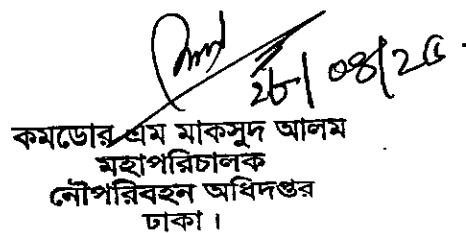 কমডোর এম মাকসুদ আলম
মহাপরিচালক
নৌপরিবহন অধিদপ্তর
ঢাকা।